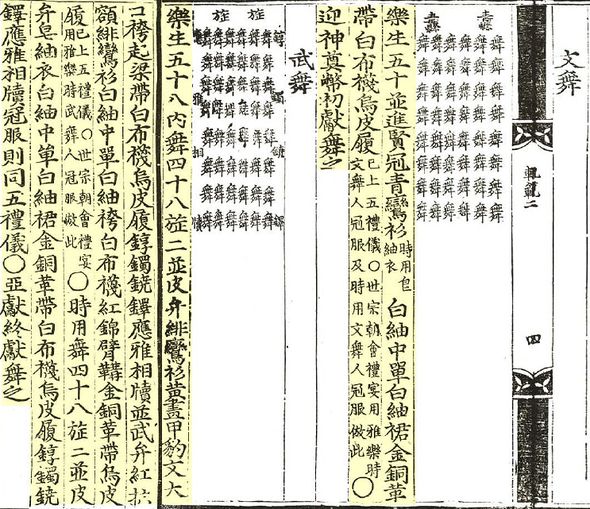 文舞
軌範二
四
纛
纛
舞舞舞舞舞舞舞舞
舞舞舞舞舞舞舞舞
舞舞舞舞舞舞舞舞
舞舞舞舞舞舞舞舞
舞舞舞舞舞舞舞舞
舞舞舞舞舞舞舞舞
樂生五十並進賢冠青鸞衫時用皂紬衣白紬中單白紬裙金銅革
帶白布襪烏皮履已上五禮儀〇世宗朝會禮宴用雅樂時文舞人冠服及時用文舞人冠服倣此〇
迎神奠幣初獻舞之
武舞
旌
旌
錞鐲鐃鐸
舞舞舞舞舞舞舞舞
舞舞舞舞舞舞舞舞
舞舞舞舞舞舞舞舞
舞舞舞舞舞舞舞舞
舞舞舞舞舞舞舞舞
舞舞舞舞舞舞舞舞
雅相牘
樂生五十八內舞四十八旌二並皮弁緋鸞衫黃畫甲豹文大
口袴起梁帶白布襪烏皮履錞鐲鐃鐸應雅相牘並武弁紅抹
額緋鸞衫白紬中單白紬袴白布襪紅錦臂鞲金銅革帶烏皮
履已上五禮儀〇世宗朝會禮宴用雅樂時武舞人冠服倣此〇時用舞四十八旌二並皮
弁皂紬衣白紬中單白紬裙金銅革帶白布襪烏皮履錞鐲鐃
鐸應雅相牘冠服則同五禮儀〇亞獻終獻舞之